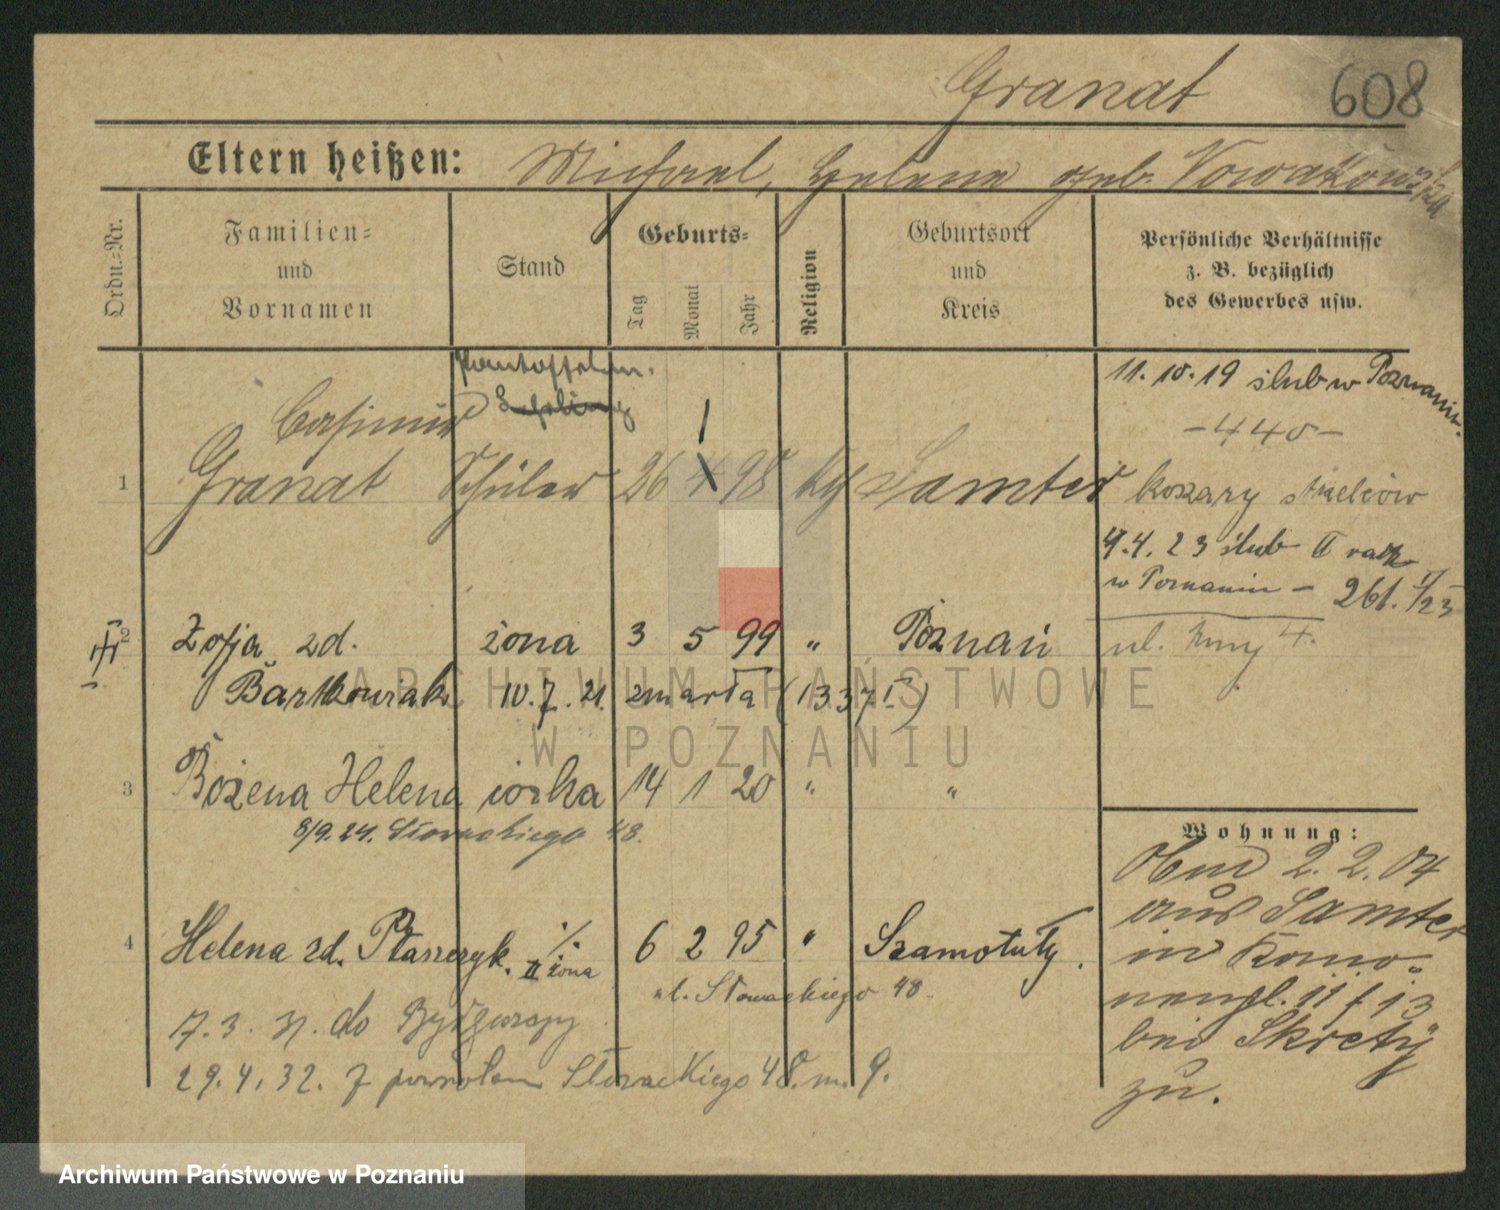 Granat 608
Eltern heißen: Michael, Helene geb. Nowakowska
Ordn.-Nr.
Familien-
und
Vornamen
Stand
Geburts-
Tag
Monat
Jahr
Religion
Geburtsort
und
Kreis
Persönliche Verhältnisse
z. B. bezüglich
des Gewerbes usw.
Pantoffelm.
11.10.19 ślub w Poznaniu.
Casimir
1
-440-
1 Granat Schüler 26 4 98 kth Samter
koszary strzelców
4.4.23 ślub II raz
w Poznaniu - 261. I/23
2 Zofja zd. żona 3 5 99 " Poznań
ul. 4.
Bartkowiak 10.7.21. zmarła (1337 I)
3 Bożena Helena córka 14 1 20 " "
8/9.24. Słowackiego 48.
Wohnung:
2.2.04
aus Samter
in
11/13
bei Skrety
zu.
4 Helena zd. Ptaszczyk. II żona 6 2 95 " Szamotuły.
ul. Słowackiego 48
17.3.31. do Bydgoszczy
29.4.32. z powrotem Słowackiego 48. m. 9.
ARCHIWUM PAŃSTWOWE
W POZNANIU
Archiwum Państwowe w Poznaniu